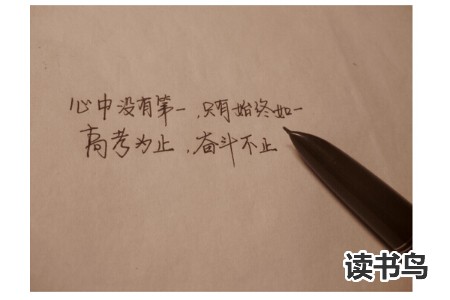 心中没有第一，只有始终如一
高考为止，奋斗不止
读书鸟